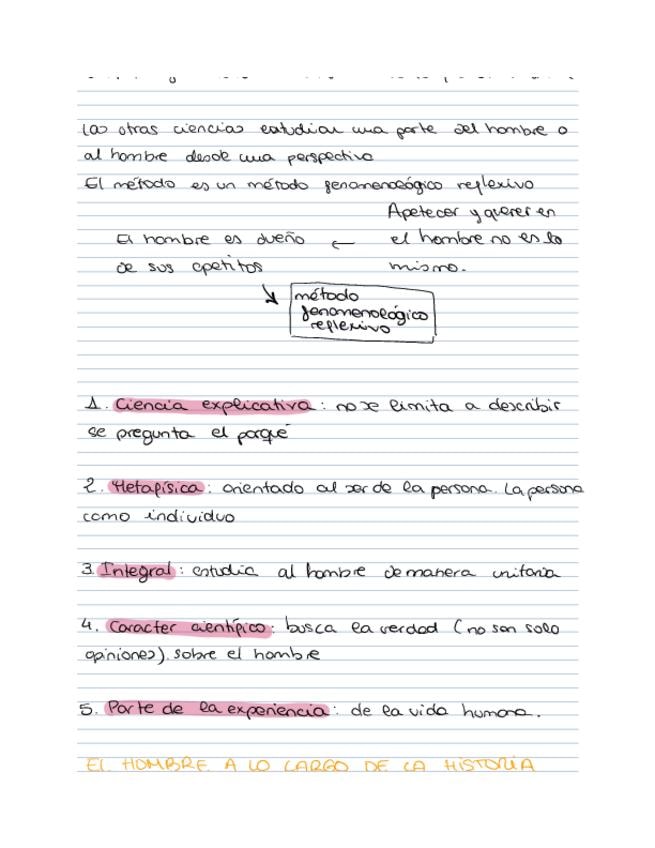 las otras ciencias estudian una parte del hombre o
al hombre desde una perspectiva
El método es un método fenomenológico reflexivo
Apetecer y querer en
El hombre es dueño ← el hombre no es lo
de sus apetitos mismo.
método
fenomenológico
reflexivo
1. Ciencia explicativa: no se limita a describir
se pregunta el porqué
2. Metafísica: orientado al ser de la persona. La persona
como individuo
3. Integral: estudia al hombre de manera unitaria
4. Caracter científico: busca la verdad (no son solo
opiniones). sobre el hombre
5. Parte de la experiencia: de la vida humana.
EL HOMBRE A LO LARGO DE LA HISTORIA